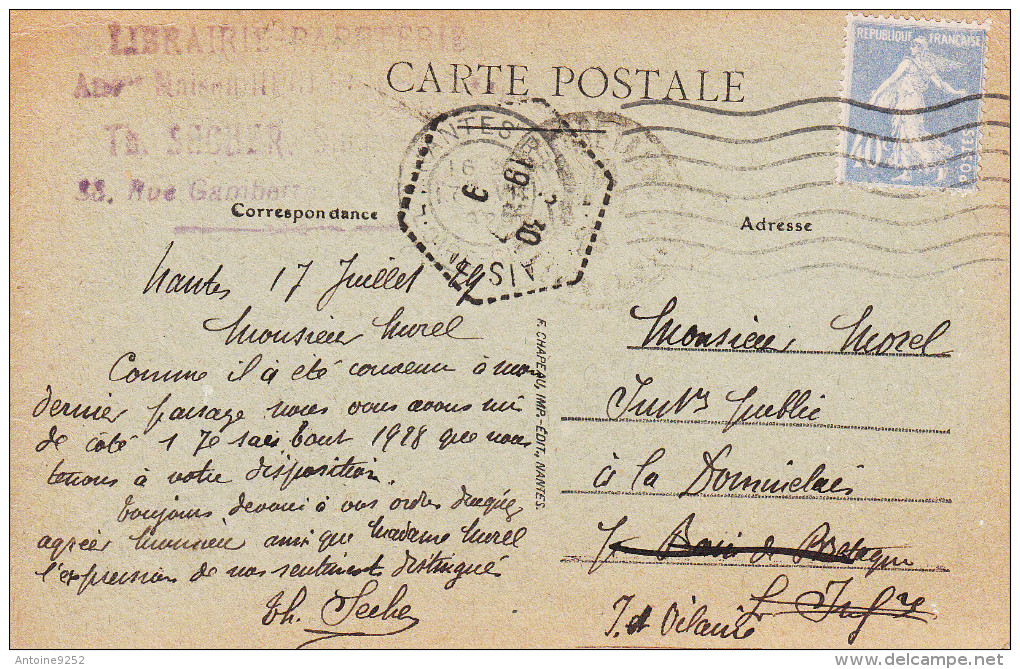 LIBRAIRIE-PAPETERIE
Maison
Th. SECHER
33, Rue Gambetta
CARTE POSTALE
REPUBLIQUE FRANÇAISE
40c
POSTES
NANTES
16
17
19
10
Correspondance
Adresse
Nantes 17 Juillet 29
Monsieur Morel
Comme il a été convenu à mon
dernier passage nous vous avons mis
de côté 1 Te bout 1928 que nous
tenons à votre disposition.
Toujours dévoué à vos ordres
agréer Monsieur ainsi que Madame Morel
l'expression de nos sentiments distingués
Th. Secher
F. CHAPEAU, IMP.-ÉDIT., NANTES.
Monsieur Morel
public
à la Dominelais
Bain de Bretagne
I et Vilaine
Antoine9252